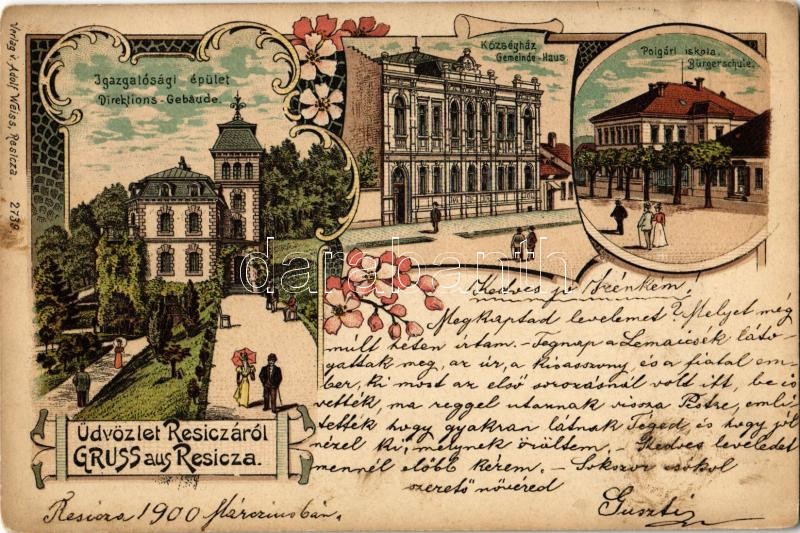 Verlag v. Adolf Weiss, Resicza 2739
Igazgatósági épület
Direktions-Gebäude.
Községház
Gemeinde-Haus
Polgári iskola.
Bürgerschule.
darabanth
Üdvözlet Resiczáról
GRUSS aus Resicza.
Kedves jó
Megkaptad levelemet? Melyet még
múlt héten írtam. - Tegnap a láto-
gattak meg, az úr, a kisasszony, és a fiatal em-
ber, ki most az első sorozásnál volt itt, be is
vették, ma reggel utaznak vissza emlí
tették hogy gyakran látnak Téged, és hogy jól
nézel ki, melynek örültem. - Kedves leveledet
mennél előbb kérem. - Sokszor csókol
szerető nővéred
Guszti
Resicza 1900 Márcziusban.